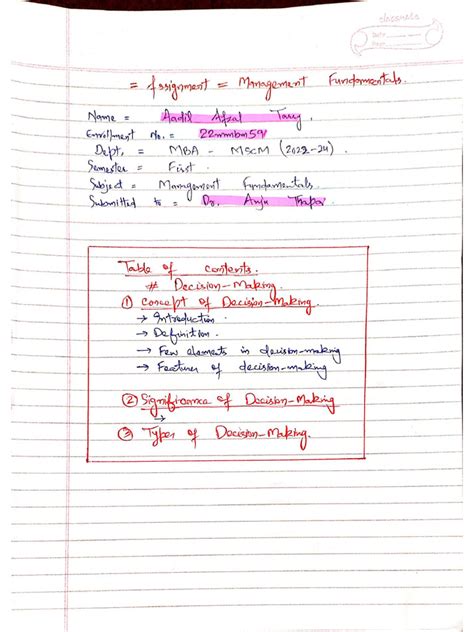 classmate
Date
Page
= Assignment = Management Fundamentals.
Name = Aadil Afzal Tary,
Enrollment No. = 22mmbm59
Dept, = MBA - MSCM (2022-24)
Semester = First.
Subject = Management Fundamentals.
Submitted to = Dr. Anju Thapa.
Table of contents.
# Decision-Making.
① Concept of Decision-Making.
→ Introduction.
→ Definition.
→ Few elements in decision-making
→ Features of decision-making
② Significance of Decision-Making
→
③ Types of Decision-Making.